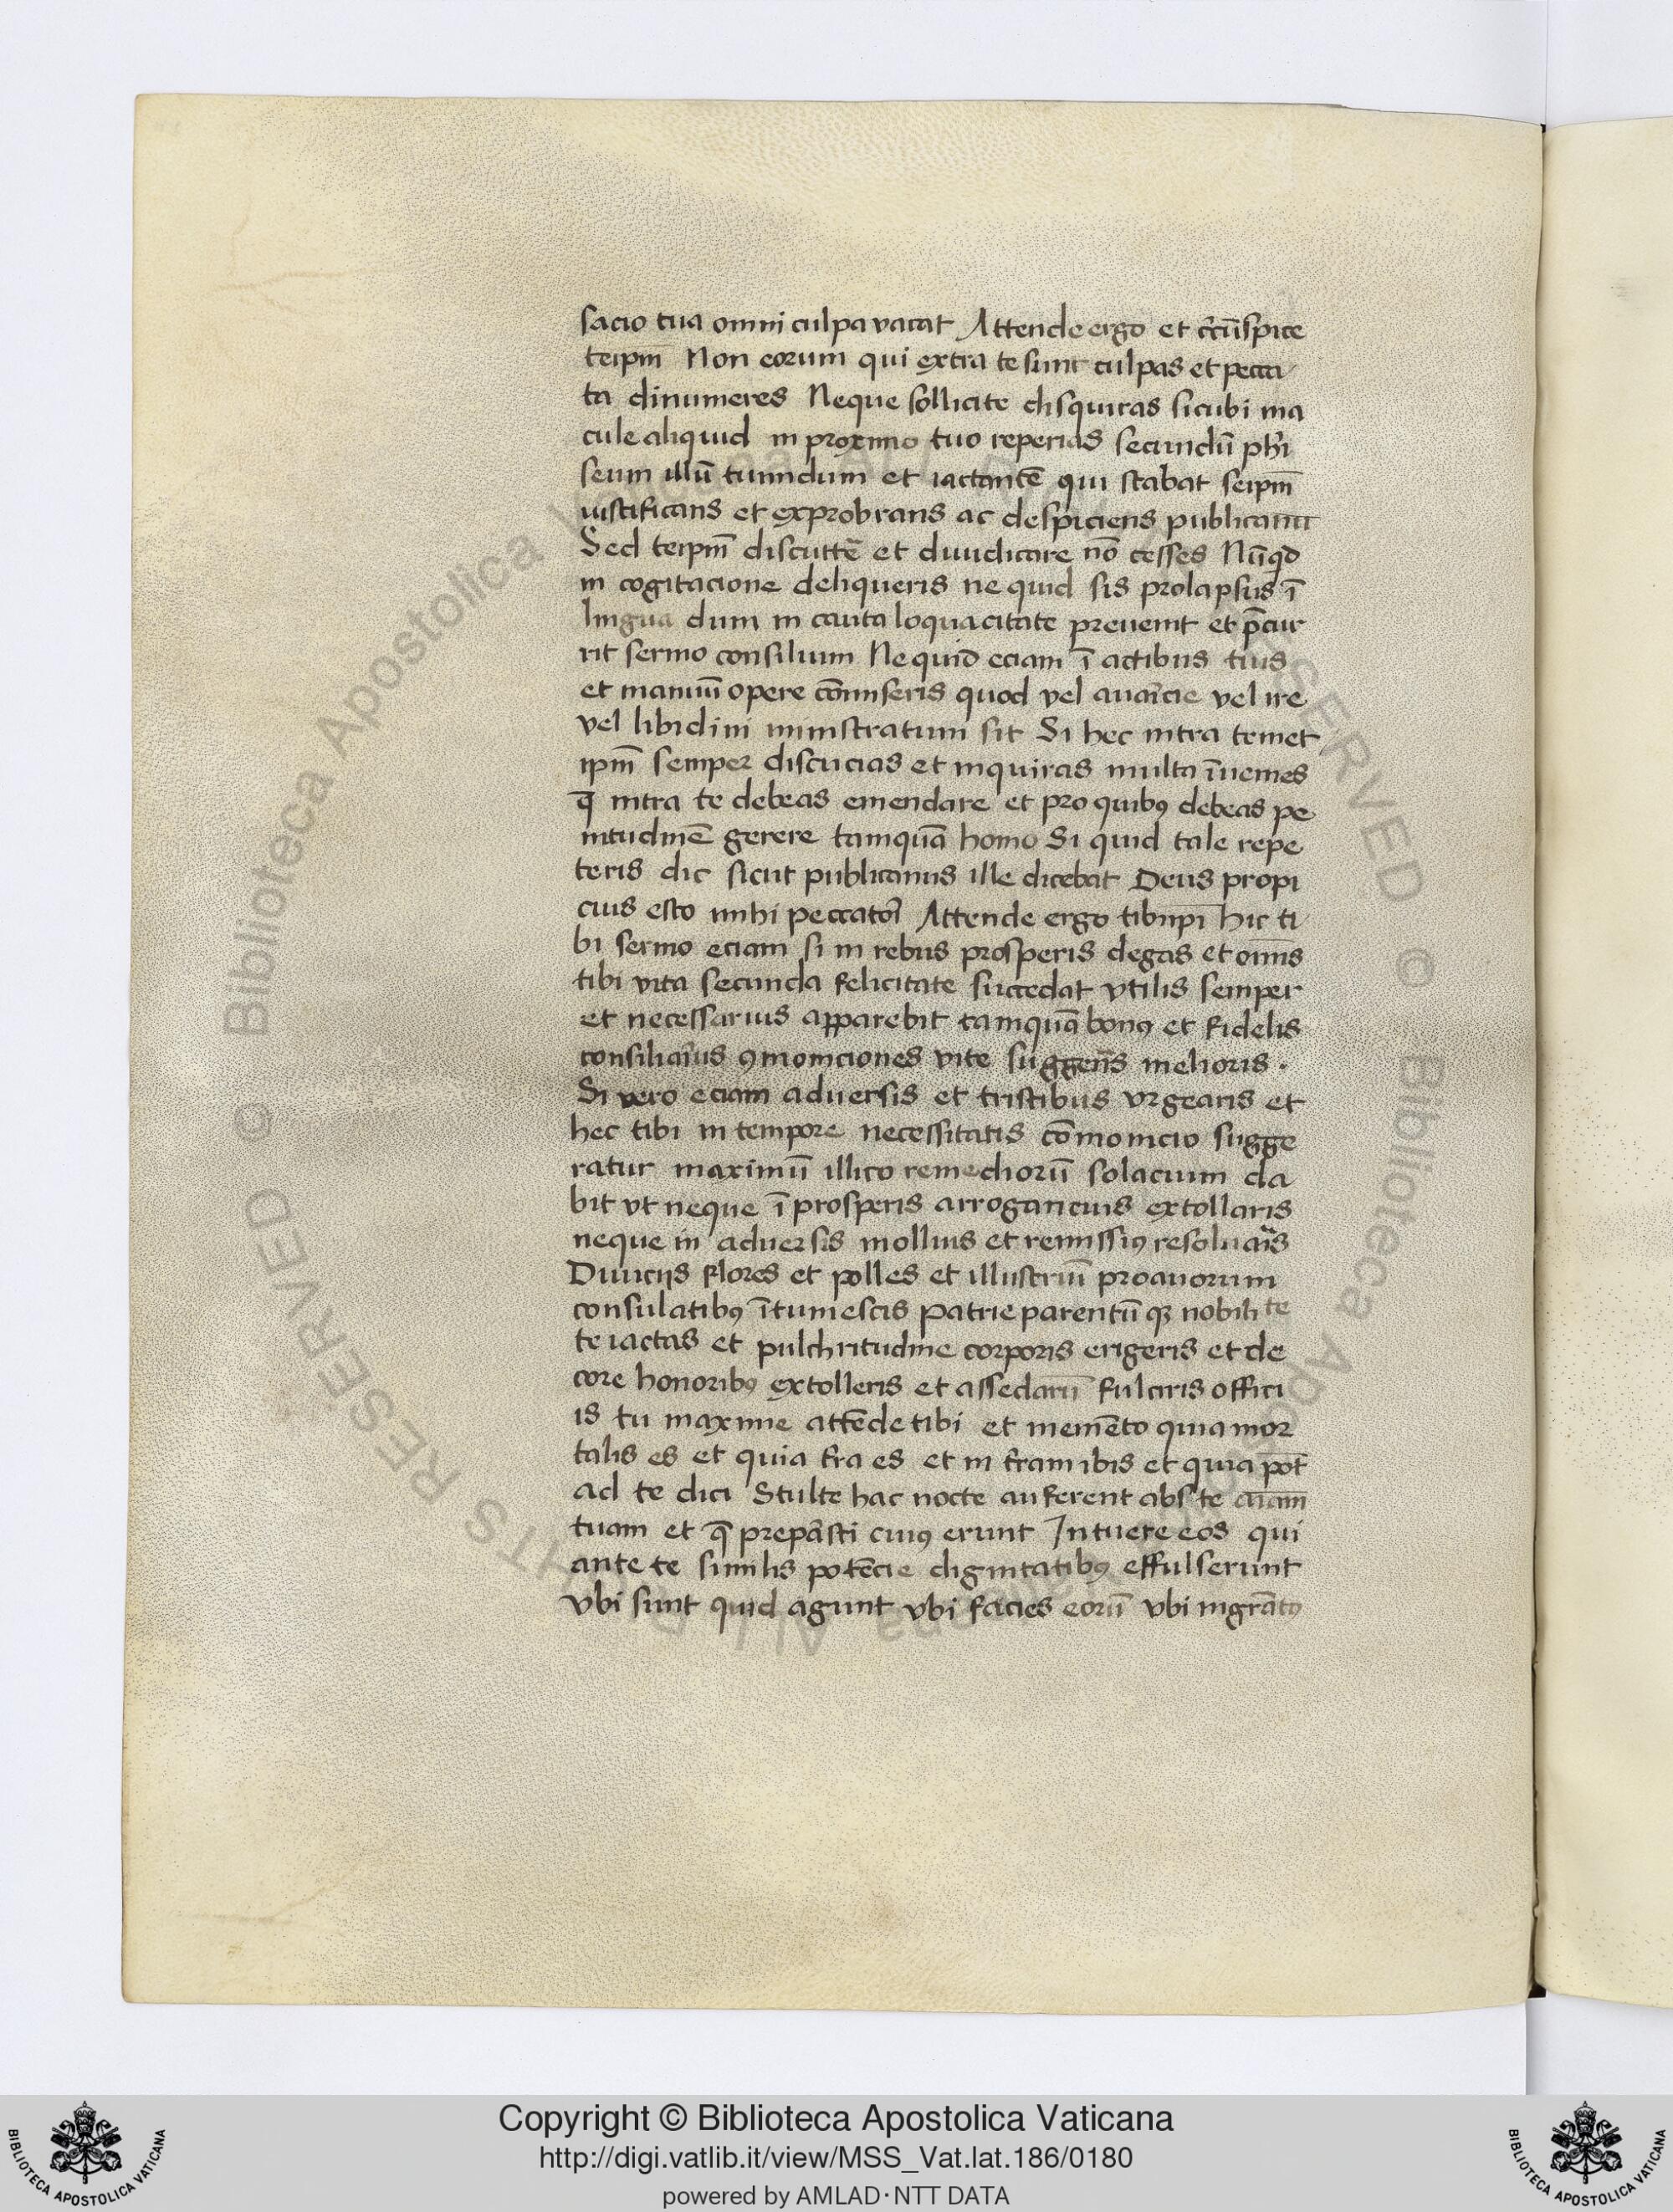 sacio tua omni culpa vacat Attende ergo et circūspice
teipm̄ Non eorum qui extra te sunt culpas et pecca
ta dinumeres Neque sollicite disquiras sicubi ma
cule aliquid in proximo tuo reperias secundū phari
seum illū tumidum et iactantē qui stabat seipm̄
iustificans et exprobrans ac despiciens publicanū
Sed teipm̄ discutte᷑ et diiudicare nō cesses Nūqd
in cogitacione deliqueris ne quid sis prolapsus ī
lingua dum in cauta loquacitate preuenit et p̄cur
rit sermo consilium Ne quid eciam ī actibus tuis
et manuū opere cōmiseris quod vel auaricie vel ire
vel libidini ministratum sit Si hec intra temet
ipm̄ semper discucias et inquiras multa īuenies
q̄ intra te debeas emendare et pro quibꝰ debeas pe
nitudinē gerere tamquā homo Si quid tale repe
teris dic sicut publicanus ille dicebat Deus propi
cius esto mihi peccatori Attende ergo tibiipi̅ hic ti
bi sermo eciam si in rebus prosperis degas et omīs
tibi vita secunda felicitate succedat vtilis semper
et necessarius apparebit tamquā bonꝰ et fidelis
consiliarius ꝯmoniciones vite suggerēs melioris .
Si vero eciam aduersis et tristibus vrgearis et
hec tibi in tempore necessitatis cōmonicio sugge
ratur maximū illico remediorū solacium da
bit vt neque ī prosperis arroganciꝰ extollaris
neque in aduersis mollius et remissiꝰ resoluaris
Diuicijs flores et polles et illustriū proauorum
consulatibꝰ ītumescis Patrie parentūqꝫ nobilite
te iactas et pulchritudine corporis erigeris et de
core honoribꝰ extolleris et assedarū fulciris offici
is tu maxime attēde tibi et memēto quia mor
talis es et quia tr̄a es et in tr̄am ibis et quia pot̄
ad te dici Stulte hac nocte auferent abs te aīam
tuam et q̄ preparasti cuiꝰ erunt Intuere eos qui
ante te similis potēcie dignitatibꝰ effulserunt
vbi sunt quid agunt vbi facies eorū vbi migrātꝰ
Copyright © Biblioteca Apostolica Vaticana
http://digi.vatlib.it/view/MSS_Vat.lat.186/0180
powered by AMLAD·NTT DATA
BIBLIOTECA APOSTOLICA VATICANA
BIBLIOTECA APOSTOLICA VATICANA